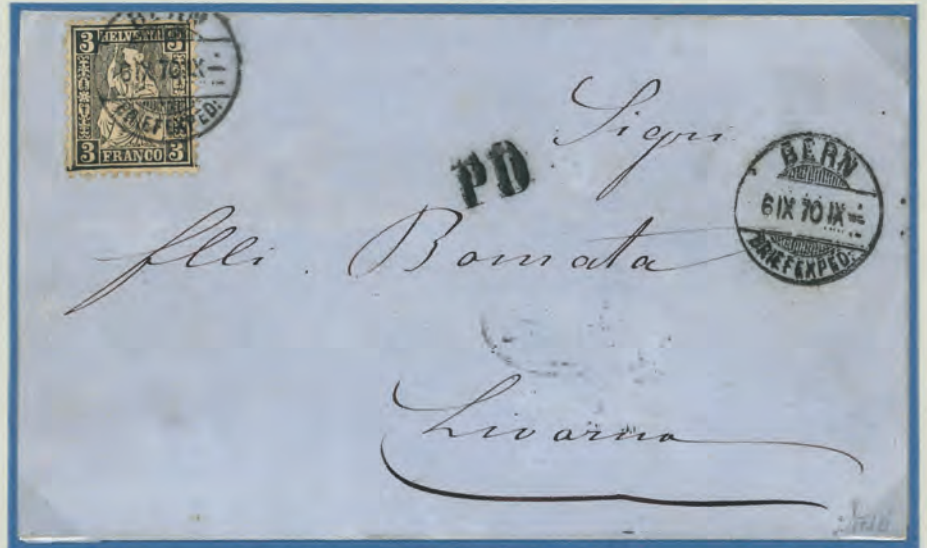 3 HELVETIA 3
3 FRANCO 3
6 IX 70 IX
BRIEFEXPED:
PD
BERN
6 IX 70 IX
BRIEFEXPED:
Sigri
flli. Bomata
Livorno